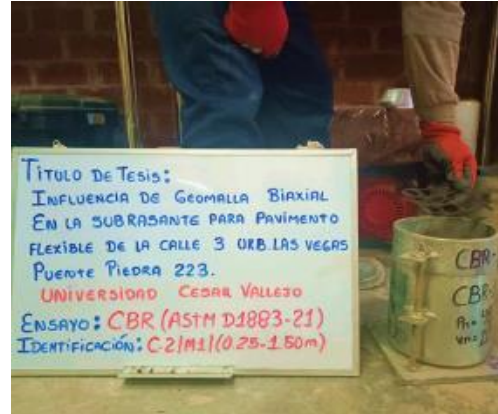 TITULO DE TESIS:
INFLUENCIA DE GEOMALLA BIAXIAL
EN LA SUBRASANTE PARA PAVIMENTO
FLEXIBLE DE LA CALLE 3 URB. LAS VEGAS
PUENTE PIEDRA 223.
UNIVERSIDAD CESAR VALLEJO
ENSAYO: CBR (ASTM D1883-21)
IDENTIFICACIÓN: C-2/M1/(0.25-1.50m)
CBR-
CBR-